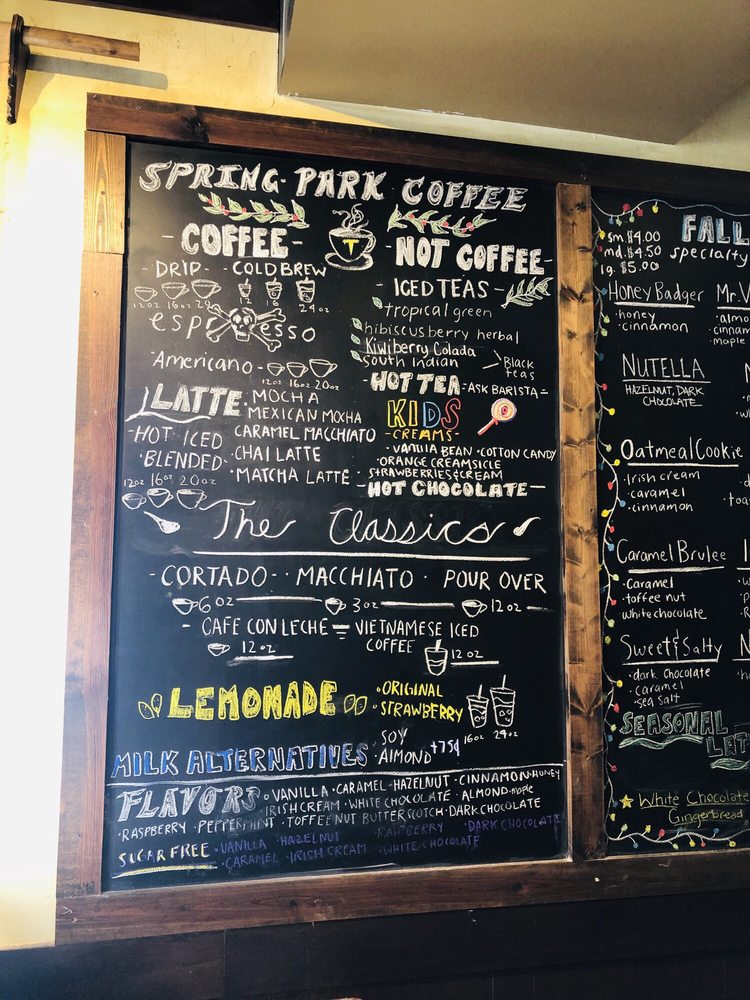 SPRING PARK COFFEE
- COFFEE -
- DRIP - - COLD BREW
12oz 16oz 20
12 16 24oz
espresso
Americano -
12oz 16oz 20oz
LATTE
- HOT · ICED
· BLENDED ·
12oz 16oz 20oz
· MOCHA
· MEXICAN MOCHA
CARAMEL MACCHIATO
· CHAI LATTE
· MATCHA LATTE ·
T
- NOT COFFEE -
ICED TEAS -
tropical green
hibiscus berry herbal
Kiwiberry Colada
south Indian
Black teas
- HOT TEA - ASK BARISTA -
KIDS
- CREAMS -
· VANILLA BEAN · COTTON CANDY
· ORANGE CREAMSICLE
· STRAWBERRIES & CREAM
- HOT CHOCOLATE -
The Classics
- CORTADO - · MACCHIATO · POUR OVER
6oz 3oz 12oz
- CAFE CON LECHE = VIETNAMESE ICED
COFFEE
12oz 12oz
LEMONADE
· ORIGINAL
· STRAWBERRY
16oz 24oz
MILK ALTERNATIVES
· SOY
· AlMOND
+75¢
FLAVORS
· VANILLA · CARAMEL · HAZELNUT · CINNAMON · HONEY
IRISH CREAM · WHITE CHOCOLATE · ALMOND · maple
· RASPBERRY · PEPPERMINT · TOFFEE NUT · BUTTERSCOTCH · DARK CHOCOLATE
SUGAR FREE
· VANILLA · HAZELNUT · RASPBERRY · DARK CHOCOLATE
· CARAMEL · IRISH CREAM · WHITE CHOCOLATE
FALL
specialty
sm. $4.00
md. $4.50
lg. $5.00
Honey Badger
· honey
· cinnamon
Mr.
cinnam
· maple
NUTELLA
HAZELNUT, DARK
CHOCOLATE
Oatmeal Cookie
· Irish cream
· caramel
· cinnamon
Caramel Brulee
· caramel
· toffee nut
white chocolate
Sweet & Salty
· dark chocolate
· caramel
· sea salt
SEASONAL
LAT
White Chocolate
Gingerbread